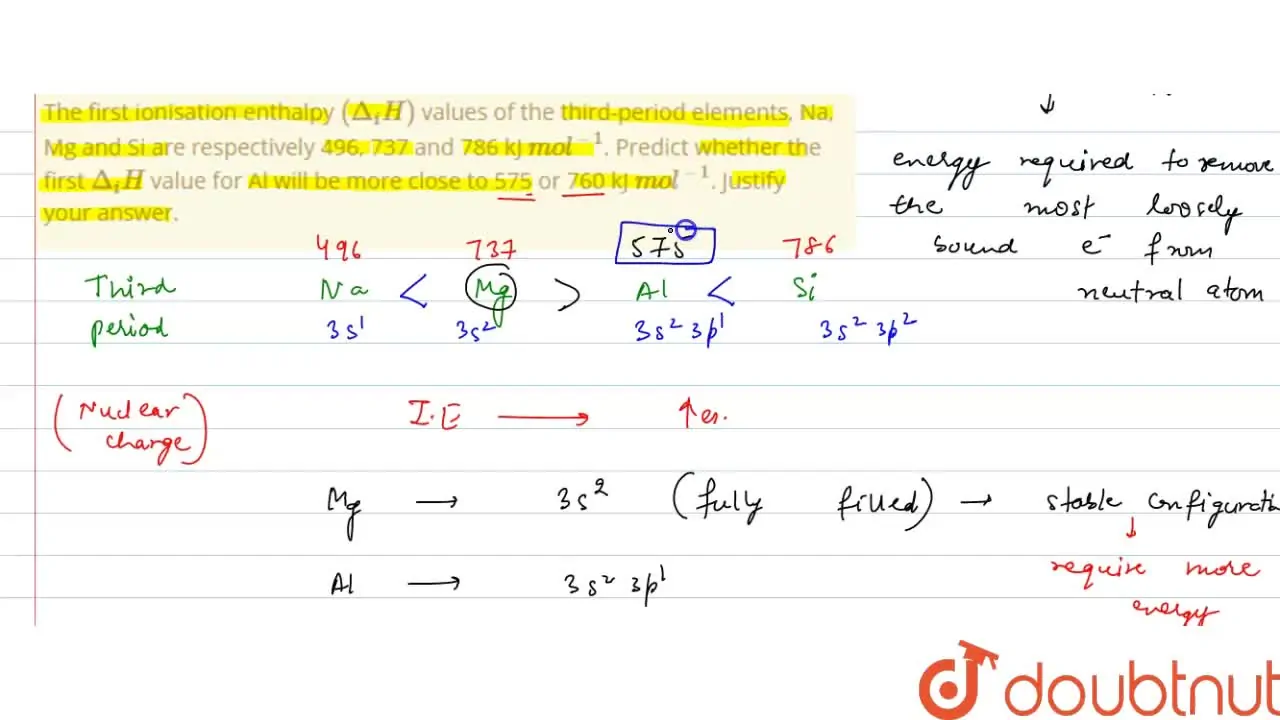 The first ionisation enthalpy (ΔᵢH) values of the third-period elements, Na,
Mg and Si are respectively 496, 737 and 786 kJ mol⁻¹. Predict whether the
first ΔᵢH value for Al will be more close to 575 or 760 kJ mol⁻¹. Justify
your answer.
↓
energy required to remove
the most loosely
bound e⁻ from
neutral atom
496 737 575 786
Third Na < Mg > Al < Si
period 3s¹ 3s² 3s² 3p¹ 3s² 3p²
(Nuclear charge) I.E → ↑es.
Mg → 3s² (fully filled) → stable
↓
require more
energy
Al → 3s² 3p¹
doubtnut